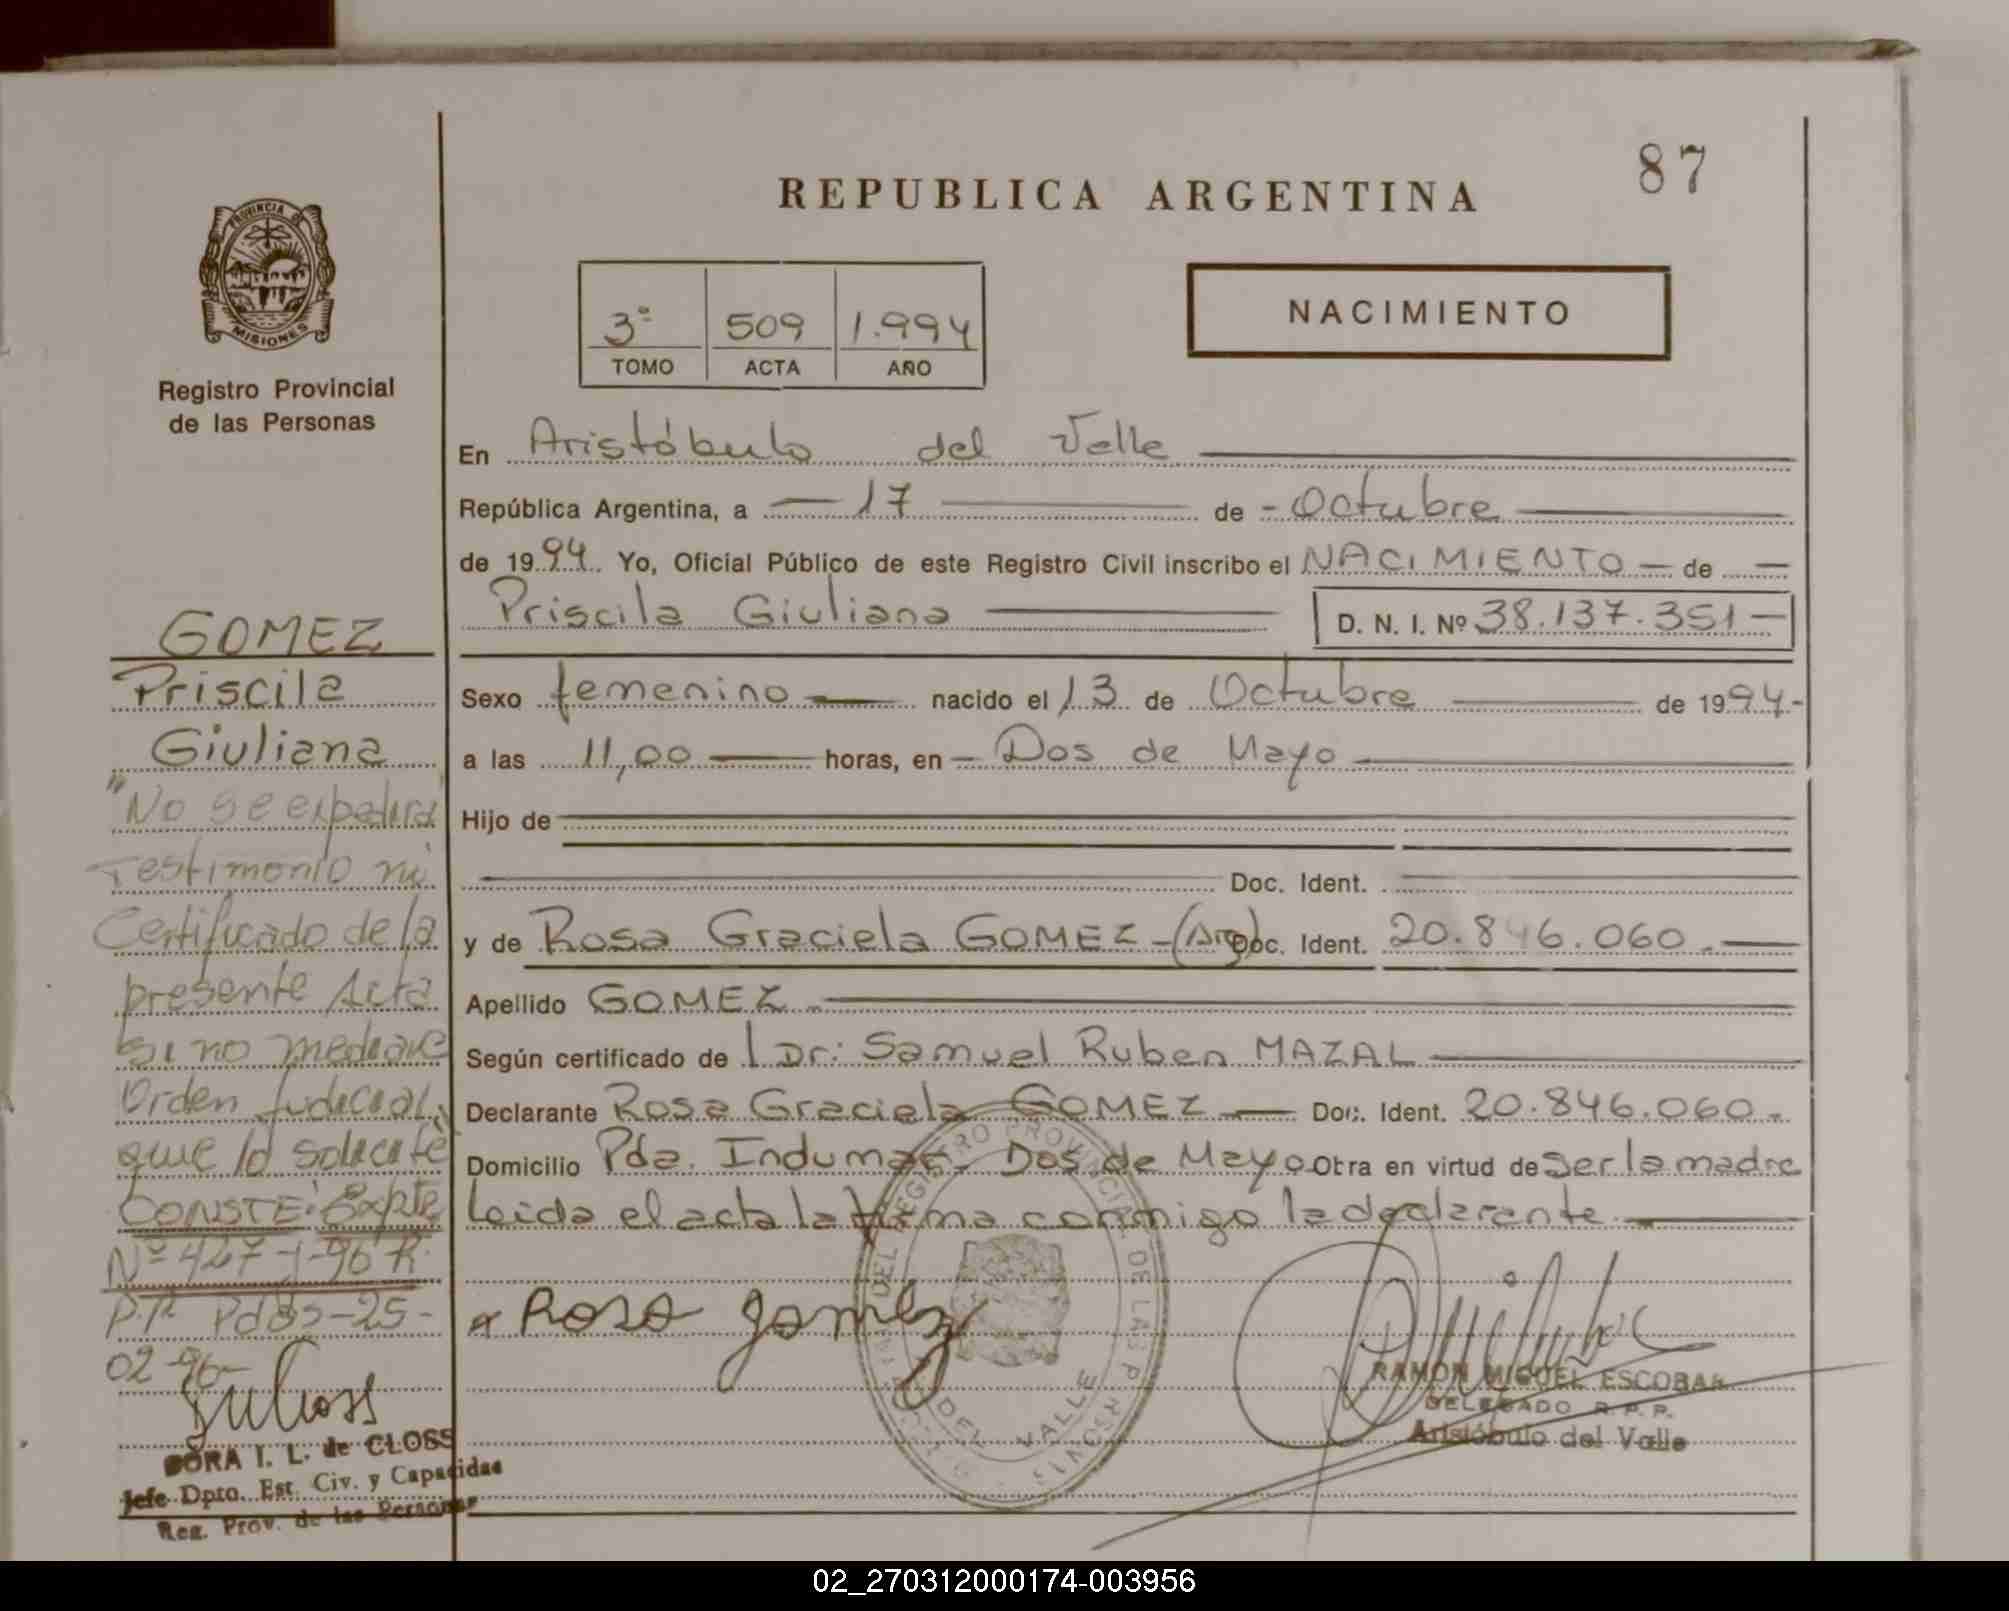 87
REPUBLICA ARGENTINA
PROVINCIA D
MISIONES
Registro Provincial
de las Personas
3º 509 1.994
TOMO ACTA AÑO
NACIMIENTO
En Aristóbulo del Valle
República Argentina, a — 17 — de - Octubre
de 1994. Yo, Oficial Público de este Registro Civil inscribo el NACIMIENTO — de —
Priscila Giuliana — D. N. I. Nº 38.137.351 —
Sexo femenino — nacido el 13 de Octubre — de 1994.-
a las 11,00 — horas, en — Dos de Mayo
Hijo de
Doc. Ident.
y de Rosa Graciela GOMEZ - (Arg) Doc. Ident. 20.846.060.-
Apellido GOMEZ.
Según certificado de l Dr: Samuel Ruben MAZAL
Declarante Rosa Graciela GOMEZ — Doc. Ident. 20.846.060.-
Domicilio Pda. Indumar- Dos de Mayo Otra en virtud de ser la madre
Leida el acta la firma conmigo la declarante.
Rosa Gomez
RAMON MIGUEL ESCOBAR
DELEGADO R. P. P.
Aristóbulo del Valle
DEL REGISTRO PROVINCIAL DE LAS P
DEL VALLE
MISIONES
GOMEZ
Priscila
Giuliana
"No se expedirá
Testimonio ni
Certificado de la
presente Acta
si no mediare
Orden Judicial,
que lo solicite
CONSTE: Expte
Nº 427-J-96 R.
25-
02-96-
DORA I. L. de CLOSS
Jefe Dpto. Est. Civ. y Capacidad
Reg. Prov. de las Personas
02_270312000174-003956